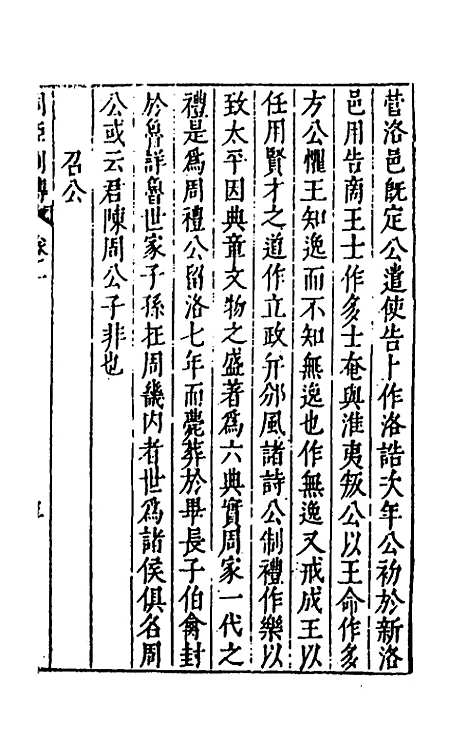 營洛邑旣定公遣使告卜作洛誥次年公初於新洛
邑用告商王士作多士奄與淮夷叛公以王命作多
方公懼王知逸而不知無逸也作無逸又戒成王以
任用賢才之道作立政并邠風諸詩公制禮作樂以
致太平因典章文物之盛著爲六典實周家一代之
禮是爲周禮公留洛七年而薨葬於畢長子伯禽封
於魯詳魯世家子孫在周畿內者世爲諸侯俱名周
公或云君陳周公子非也
召公